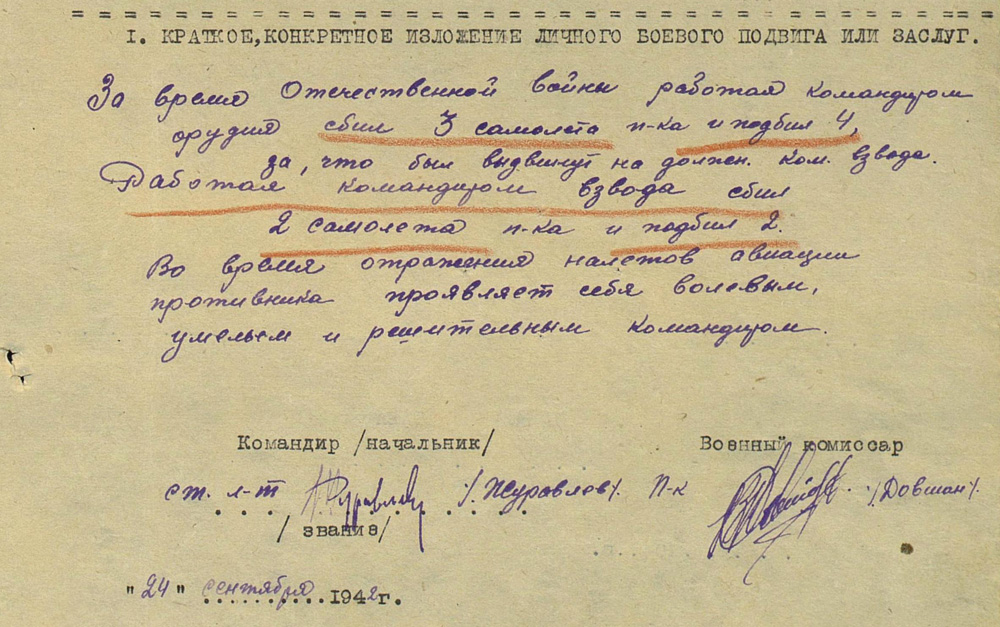 I. КРАТКОЕ,КОНКРЕТНОЕ ИЗЛОЖЕНИЕ ЛИЧНОГО БОЕВОГО ПОДВИГА ИЛИ ЗАСЛУГ.
За время Отечественной войны работая командиром
орудия сбил 3 самолета п-ка и подбил 4,
за, что был выдвинут на должен. ком. взвода.
Работая командиром взвода сбил
2 самолета п-ка и подбил 2.
Во время отражения налетов авиации
противника проявляет себя волевым,
умелым и решительным командиром.
Командир /начальник/ Военный комиссар
ст. л-т /Журавлев/. П-к /Довман/.
/ звание/
"24" сентября 1942г.